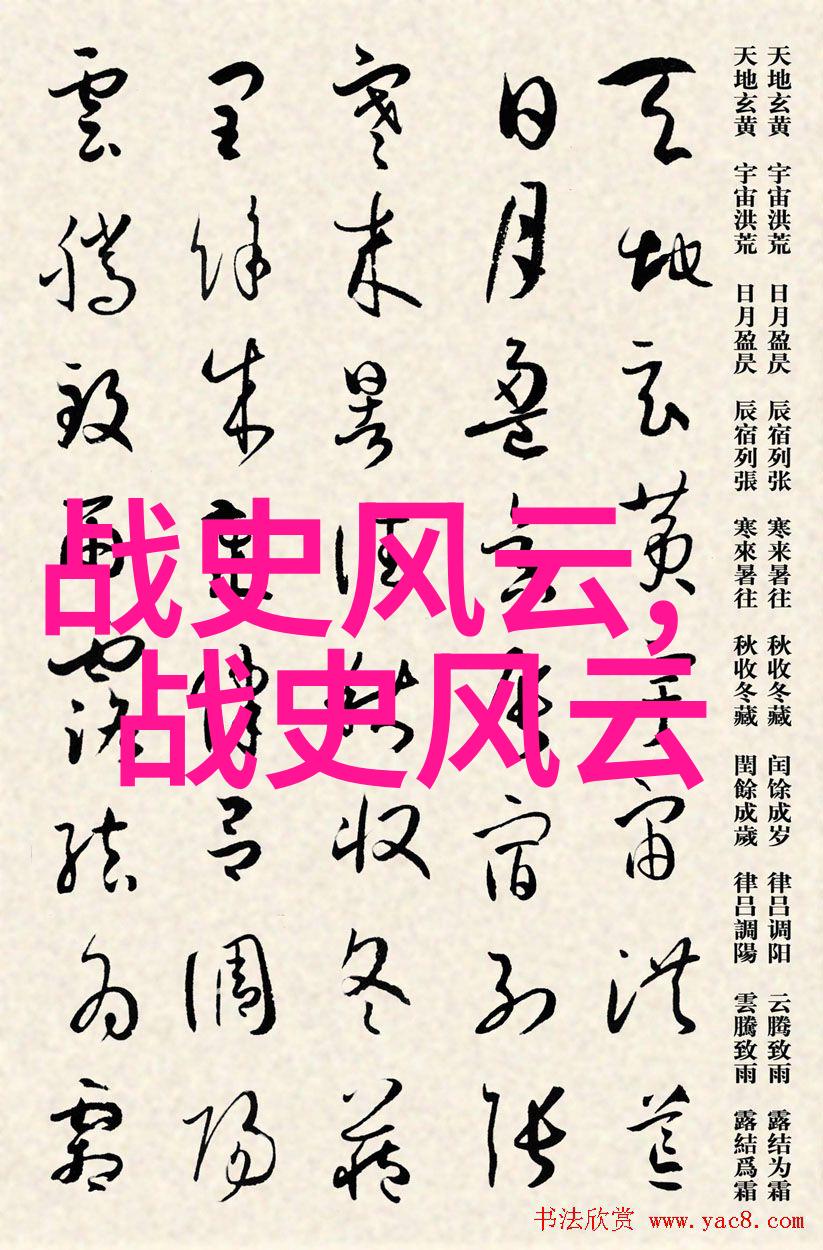 天地玄黄 宇宙洪荒 日月盈昃 辰宿列张 寒来暑往 秋收冬藏 闰馀成岁 律吕调阳 云腾致雨 露结为霜
天地玄黄 宇宙洪荒 日月盈昃 辰宿列張 寒來暑往 秋收冬藏 閏餘成歲 律吕調陽 雲騰致雨 露結爲霜
天地玄黄宇宙洪荒
日月盈昃辰宿列張
寒来暑往秋收冬藏
閏餘成歲律吕調陽
雲騰致雨露結為霜
战史风云,
战史风云
书法欣赏 www.yac8.com